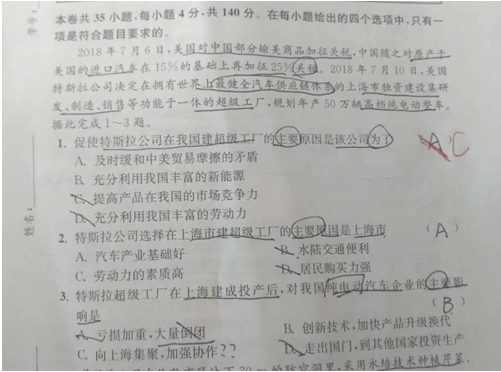 本卷共 35 小题,每小题 4 分,共 140 分。在每小题给出的四个选项中,只有一
项是符合题目要求的。
2018 年 7 月 6 日,美国对中国部分输美商品加征关税,中国随之对原产于
美国的进口汽车在 15%的基础上再加征 25%关税。2018 年 7 月 10 日,美国
特斯拉公司决定在拥有世界上最健全汽车供应链体系的上海市独资建设集研
发、制造、销售等功能于一体的超级工厂,规划年产 50 万辆高档纯电动整车。
据此完成 1~3 题。
1. 促使特斯拉公司在我国建超级工厂的主要原因是该公司为了 ( A ) C
A. 及时缓和中美贸易摩擦的矛盾
B. 充分利用我国丰富的新能源
C. 提高产品在我国的市场竞争力
D. 充分利用我国丰富的劳动力
2. 特斯拉公司选择在上海市建超级工厂的主要原因是上海市 ( A )
A. 汽车产业基础好 B. 水陆交通便利
C. 劳动力的素质高 D. 居民购买力强
3. 特斯拉超级工厂在上海建成投产后,对我国纯电动汽车企业的主要影
响是 ( B )
A. 亏损加重,大量倒闭 B. 创新技术,加快产品升级换代
C. 向上海集聚,加强协作?? D. 走出国门,到其他国家投资生产
30 m 的防空洞里,采用水培技术种植芹菜、
姓名: